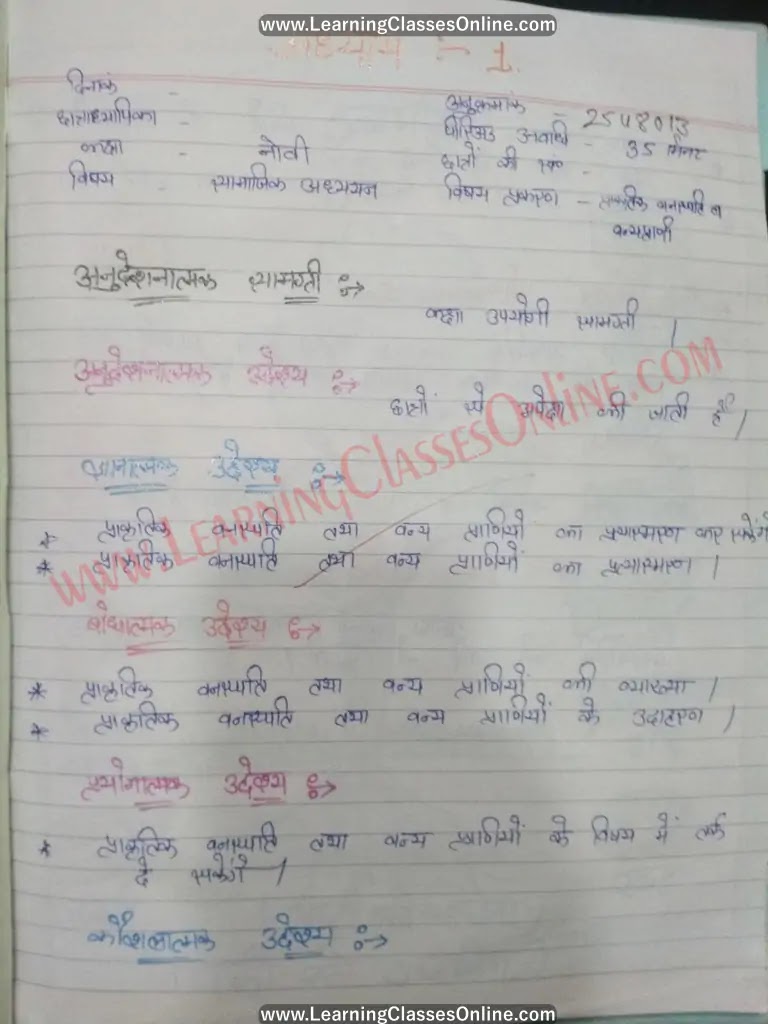 www.LearningClassesOnline.com
अध्याय :- 1.
दिनांक -
छात्राध्यापिका -
कक्षा - नोवी
विषय - सामाजिक अध्ययन
अनुक्रमांक - 2548013
पीरिअड अवधि - 35 मिनट
छात्रों की सं० -
विषय प्रकरण - प्राकृतिक वनस्पति व
वन्यप्राणी
अनुदेशनात्मक सामग्री :→
कक्षा उपयोगी सामग्री |
अनुदेशनात्मक उद्देश्य :→
छात्रों से अपेक्षा की जाती है |
ज्ञानात्मक उद्देश्य :→
* प्राकृतिक वनस्पति तथा वन्य प्राणियों का प्रत्यास्मरण कर सकेंगे
* प्राकृतिक वनस्पति तथा वन्य प्राणियों का प्रत्यास्मरण |
www.LearningClassesOnline.com
बोधात्मक उद्देश्य :→
* प्राकृतिक वनस्पति तथा वन्य प्राणियों की व्याख्या |
* प्राकृतिक वनस्पति तथा वन्य प्राणियों के उदाहरण |
प्रयोगात्मक उद्देश्य :→
* प्राकृतिक वनस्पति तथा वन्य प्राणियों के विषय में तर्क
दे सकेंगे |
कौशलात्मक उद्देश्य :→
www.LearningClassesOnline.com